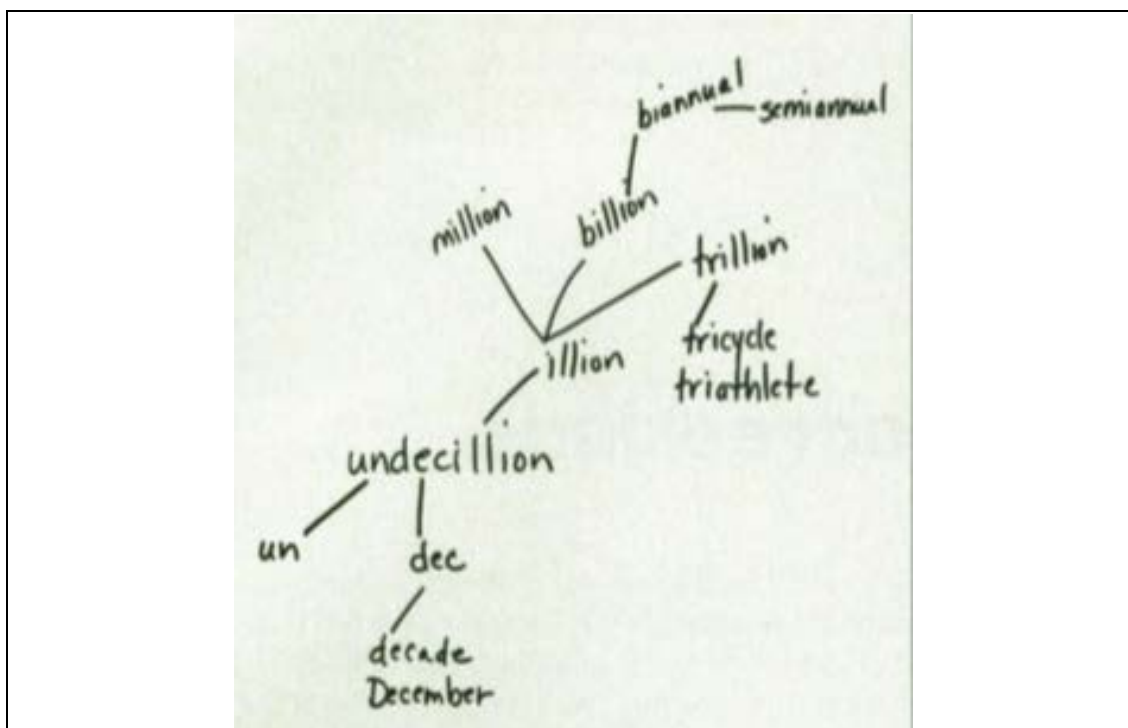 biannual
semiannual
million
billion
trillion
illion
tricycle
triathlete
undecillion
un
dec
decade
December